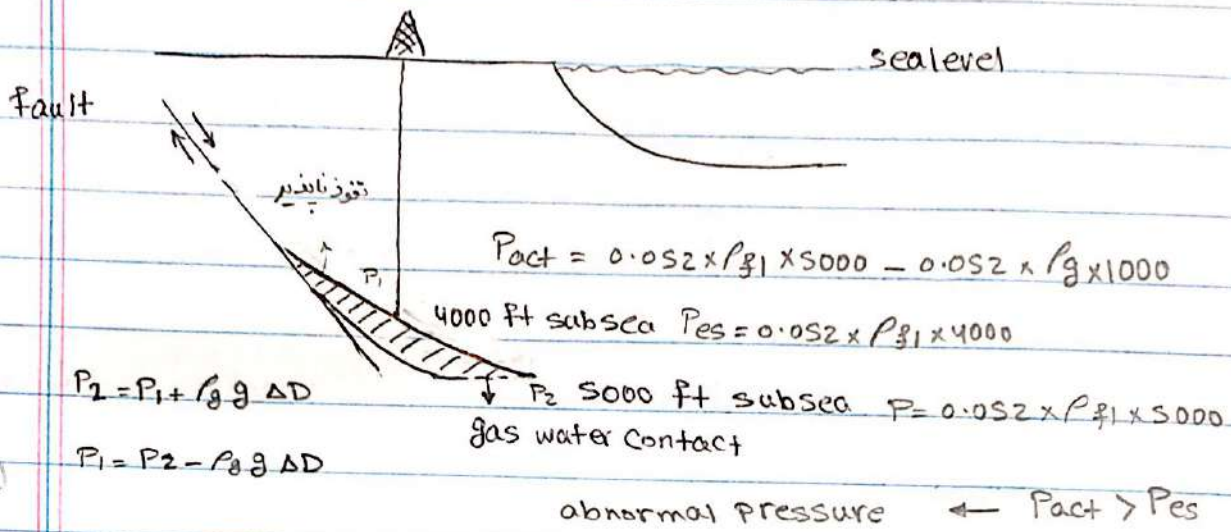 sealevel
fault
نفوذ ناپذیر
Pact = 0.052 × ρf1 × 5000 – 0.052 × ρg × 1000
P1
4000 ft subsea Pes = 0.052 × ρf1 × 4000
P2 = P1 + ρg g ΔD
P2 5000 ft subsea P = 0.052 × ρf1 × 5000
gas water contact
P1 = P2 – ρg g ΔD
abnormal pressure ← Pact > Pes